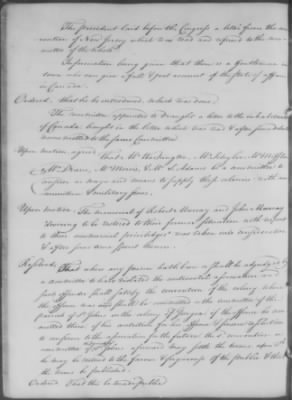 The president laid before the Congress a letter from the con-
vention of New Jersey which was read and referred to the com-
mittee of the whole
Information being given that there is a Gentleman in
town who can give a full & just account of the state of affairs
in Canada.
Ordered, that he be introduced, which was done
The committee appointed to draught a letter to the inhabitants
of Canada brought in the letter which was read & after some debate
recommitted to the same Committee
Upon motion agreed, that Mr Washington, Mr Schuyler, Mr Mifflin
Mr Deane, Mr Morris, & Mr S. Adams be a committee to
consider on ways and means to supply these colonies with am-
munition & military stores.
Upon motion The memorial of Robert Murray and John Murray
desiring to be restored to their former situation with respect
to their commercial priviledges was taken into consideration
& after some time spent therein
Resolved, That where any person hath been or shall be adjudged by
a committee to have violated the continental association and
such offender shall satisfy the convention of the colony where
the offence was or shall be committed or the committee of the
parish of St Johns in the colony of Georgia if the offence be com-
mitted there, of his contrition for his offence & sincere resolution
to conform to the association for the future, the sd convention or
committee of St Johns aforesaid may settle the terms upon which
he may be restored to the favour & forgiveness of the public & that
the terms be published.
Ordered That this be made public